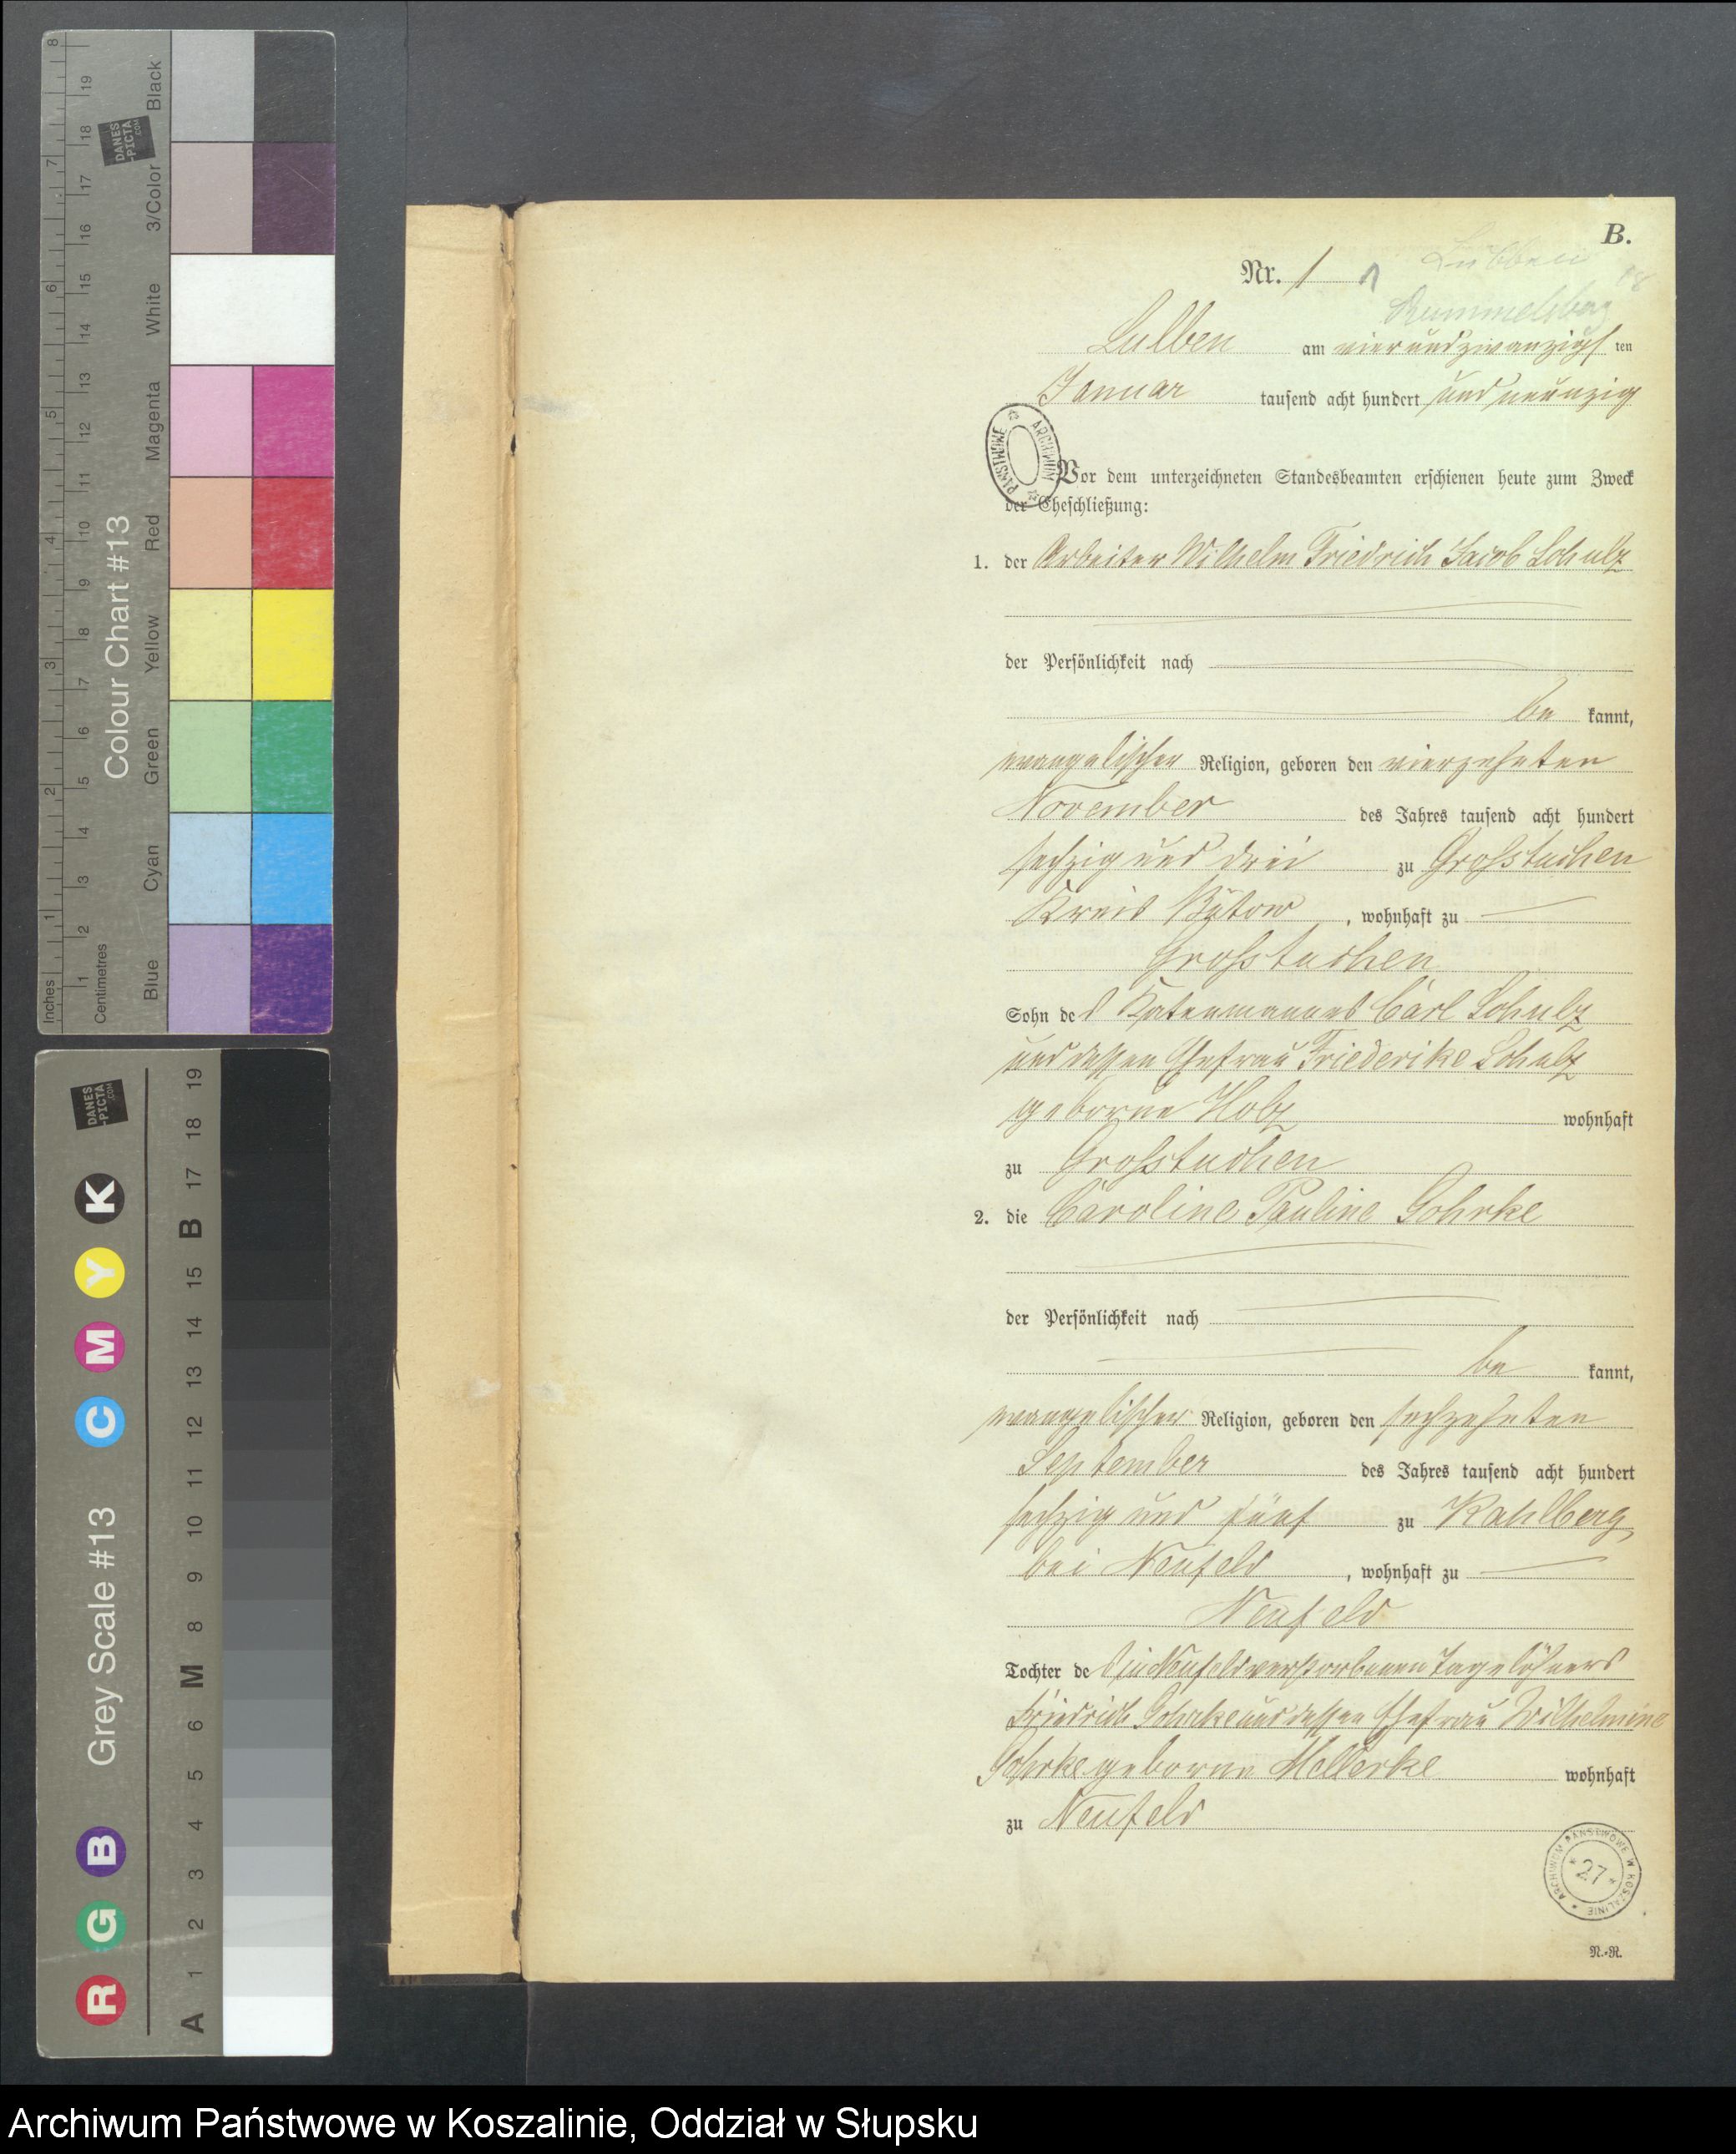 B.
Nr. 1
Lubben
Rummelsburg
Lubben am vierundzwanzigsten
Januar tausend acht hundert und neunzig
ARCHIWUM PAŃSTWOWE
Vor dem unterzeichneten Standesbeamten erschienen heute zum Zweck
der Eheschließung:
1. der Arbeiter Wilhelm Friedrich Jacob Schulz
der Persönlichkeit nach
be kannt,
evangelischer Religion, geboren den vierzehnten
November des Jahres tausend acht hundert
sechzig und drei zu Großtuchen
Kreis Bütow, wohnhaft zu
Großtuchen
Sohn des Katenmannes Carl Schulz
und dessen Ehefrau Friederike Schulz
geborne Holz wohnhaft
zu Großtuchen
2. die Caroline Pauline Gohrke
der Persönlichkeit nach
be kannt,
evangelischer Religion, geboren den sechzehnten
September des Jahres tausend acht hundert
sechzig und fünf zu Kahlberg
bei Neufeld, wohnhaft zu
Neufeld
Tochter des in Neufeld verstorbenen Tagelöhners
Friedrich Gohrke und dessen Ehefrau Wilhelmine
Gohrke geborne Mellerke wohnhaft
zu Neufeld
ARCHIWUM PAŃSTWOWE W KOSZALINIE
* 27 *
N.-R.
Colour Chart #13
Inches 1 2 3 4 5 6 7 8
Centimetres 1 2 3 4 5 6 7 8 9 10 11 12 13 14 15 16 17 18 19
Blue Cyan Green Yellow Red Magenta White 3/Color Black
DANES
-PICTA
.COM
Grey Scale #13
R G B C M Y K
A 1 2 3 4 5 6 M 8 9 10 11 12 13 14 15 B 17 18 19
DANES
-PICTA
.COM
Archiwum Państwowe w Koszalinie, Oddział w Słupsku